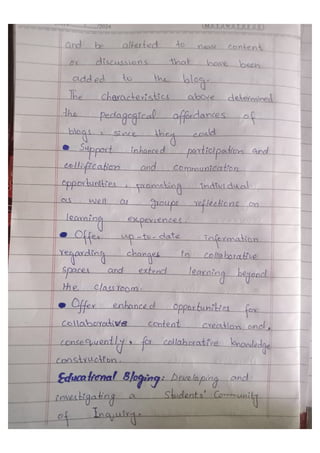 and be alterted to new content
or discussions that have been
added to the blog.
The characteristics above determined
the pedagogical affordances of
blogs, since they could
• Support inhanced participation and
collification and communication
opportunities, promoting individual
as well as groups reflections on
learning experiences.
• Offer up-to-date information
regarding changes in collaborative
spaces and extend learning beyond
the classroom.
• Offer enhanced opportunities for
collaborative content creation and,
consequently, for collaborative knowledge
construction.
Educational Bloging: Developing and
investigating a Students' Community
of Inquiry.